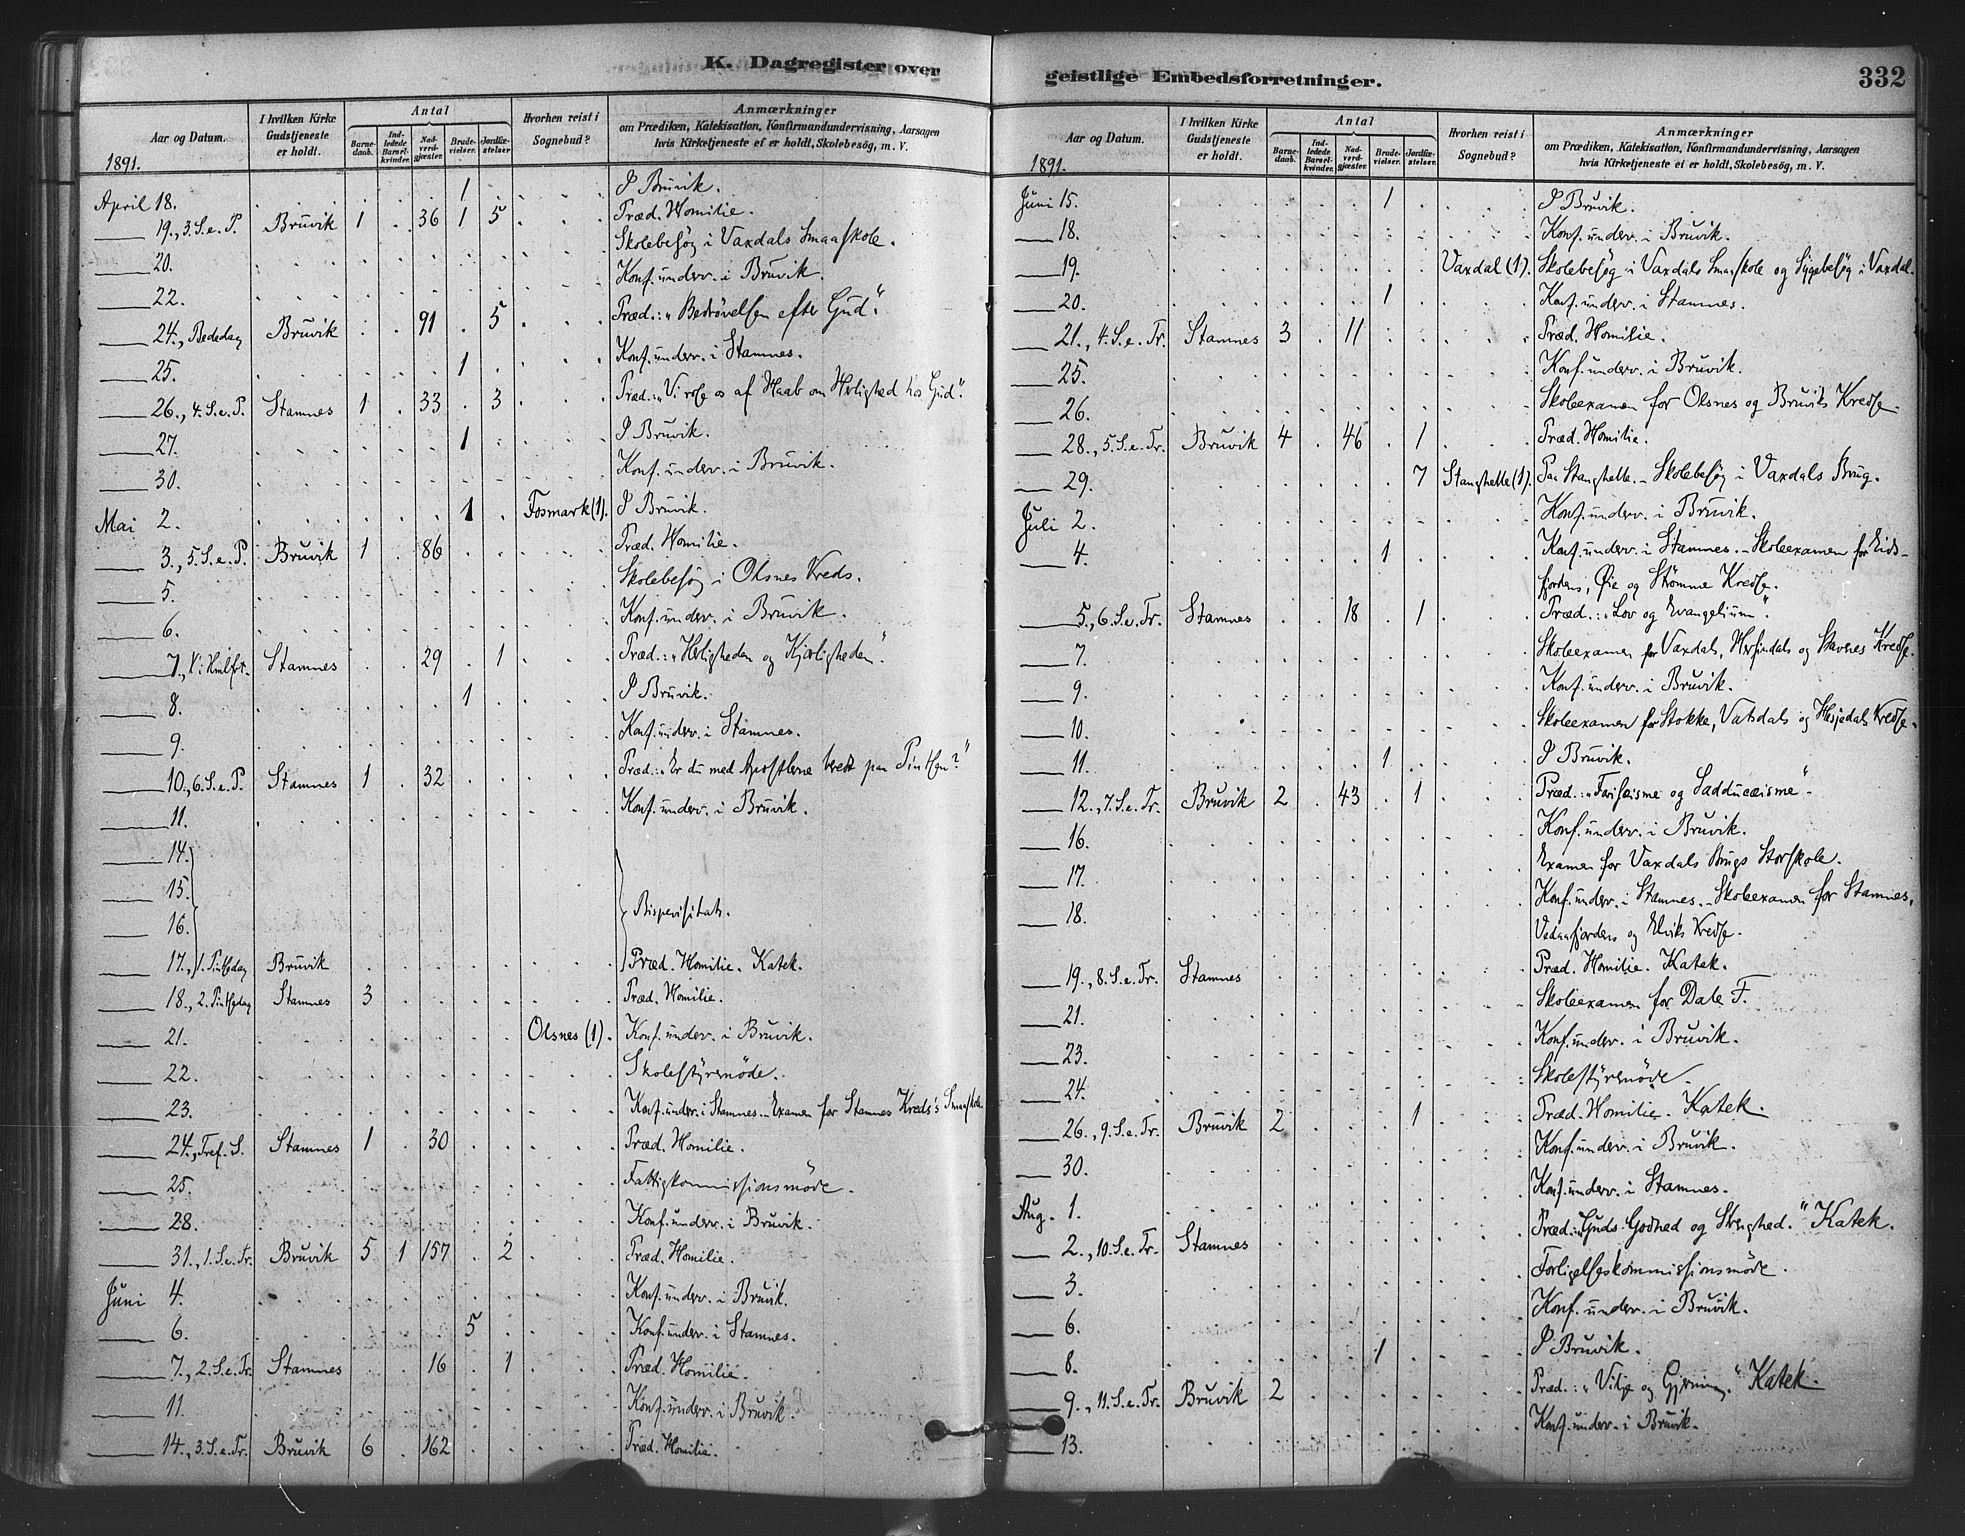 K. Dagregister over
Aar og Datum.
1891.
I hvilken Kirke Gudstjeneste er holdt.
Antal
Barnedaab. Indledede Barselkvinder. Nadverdgjæster. Brudevielser. Jordfæstelser.
Hvorhen reist i Sognebud?
Anmærkninger
om Prædiken, Katekisation, Konfirmandundervisning, Aarsagen
hvis Kirketjeneste ei er holdt, Skolebesög, m. V.
April 18. 1 I Bruvik.
19., 3.S.e.P. Bruvik 1 36 1 5 Præd. Homilie.
Skolebesøg i Vaxdals Smaaskole.
20.
Konf.underv. i Bruvik.
22.
24., Bededag Bruvik 91 5 Præd.: "Bedrøvelsen efter Gud".
25. 1 Konf.underv. i Stamnes.
26., 4.S.e.P. Stamnes 1 33 3 Præd.: "Vi rose os af Haab om Herlighed hos Gud".
27. 1 I Bruvik.
30. Konf.underv. i Bruvik.
Mai 2. 1 Fosmark (1). I Bruvik.
3., 5.S.e.P. Bruvik 1 86 Præd. Homilie.
5. Skolebesøg i Olsnes Kreds.
6. Konf.underv. i Bruvik.
7., Stamnes 29 1 Præd.: "Herligheden og Kjærligheden".
8. 1 I Bruvik.
9. Konf.underv. i Stamnes.
10., 6.S.e.P. Stamnes 1 32 Præd.: "Er du med Apostlerne beredt paa Pintsen?"
11. Konf.underv. i Bruvik.
14.
15.
16. Bispevisitats.
17., 1. Pintsedag Bruvik Præd. Homilie. Katek.
18., 2. Pintsedag Stamnes 3 Præd. Homilie.
21. Olsnes (1). Konf.underv. i Bruvik.
22. Skolestyremöde.
23. Konf.underv. i Stamnes. - Examen for Stamnes Kreds's Smaaskole
24., Tref.S. Stamnes 1 30 Præd. Homilie.
25. Fattigkommissionsmöde.
28. Konf.underv. i Bruvik.
31., 1.S.e.Tr. Bruvik 5 1 157 2 Præd. Homilie.
Juni 4. Konf.underv. i Bruvik.
6. 5 Konf.underv. i Stamnes.
7., 2.S.e.Tr. Stamnes 16 1 Præd. Homilie.
11. Konf.underv. i Bruvik.
14., 3.S.e.Tr. Bruvik 6 162 Præd. Homilie.
geistlige Embedsforretninger.
332
Aar og Datum.
1891.
I hvilken Kirke Gudstjeneste er holdt.
Antal
Barnedaab. Indledede Barselkvinder. Nadverdgjæster. Brudevielser. Jordfæstelser.
Hvorhen reist i Sognebud?
Anmærkninger
om Prædiken, Katekisation, Konfirmandundervisning, Aarsagen
hvis Kirketjeneste ei er holdt, Skolebesög, m. V.
Juni 15. 1 I Bruvik.
18. Konf.underv. i Bruvik.
19. Vaxdal (1). Skolebesøg i Vaxdals Smaaskole og Sygebesøg i Vaxdal.
20. 1 Konf.underv. i Stamnes.
21., 4.S.e.Tr. Stamnes 3 11 Præd. Homilie.
25. Konf.underv. i Bruvik.
26. Skoleexamen for Olsnes og Bruviks Kredse.
28., 5.S.e.Tr. Bruvik 4 46 1 Præd. Homilie.
29. 7 Stanghelle (1). Paa Stanghelle. - Skolebesøg i Vaxdals Brug.
Juli 2. Konf.underv. i Bruvik.
4. 1 Konf.underv. i Stamnes. - Skoleexamen for Eids-
fjordens, Øie og Strømme Kredse.
5., 6.S.e.Tr. Stamnes 18 1 Præd.: "Lov og Evangelium".
7. Skoleexamen for Vaxdals, Herfindals og Stavenes Kredse.
9. Konf.underv. i Bruvik.
10. Skoleexamen for Stokke, Vatsdals og Hesjedals Kredse.
11. 1 I Bruvik.
12., 7.S.e.Tr. Bruvik 2 43 1 Præd.: "Farisæisme og Sadducæisme".
16. Konf.underv. i Bruvik.
17. Examen for Vaxdals Brugs Storskole.
18. Konf.underv. i Stamnes. - Skoleexamen for Stamnes,
Vedaafjordens og Elviks Kredse.
19., 8.S.e.Tr. Stamnes Præd. Homilie. Katek.
21. Skoleexamen for Dale F.
23. Konf.underv. i Bruvik.
24. Skolestyremöde.
26., 9.S.e.Tr. Bruvik 2 1 Præd. Homilie. Katek.
30. Konf.underv. i Bruvik.
Aug. 1. Konf.underv. i Stamnes.
2., 10.S.e.Tr. Stamnes Præd.: "Guds Godhed og Strenghed." Katek.
3. Forligelseskommissionsmöde.
6. Konf.underv. i Bruvik.
8. 1 I Bruvik.
9., 11.S.e.Tr. Bruvik 2 Præd.: "Vilje og Gjerning." Katek.
13. Konf.underv. i Bruvik.